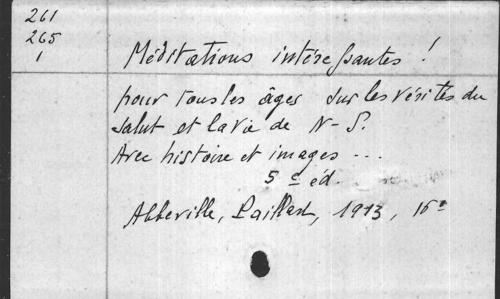 261
265
1
Méditations intéressantes !
pour tous les âges sur les vérités du
salut et la vie de N-S.
Avec histoire et images ...
5e éd.
Abbeville, Paillart, 1913, 16°